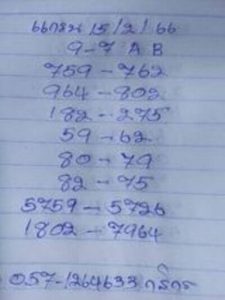 15/2/66
9-7 A B
759-762
964-802
182-275
59-62
80-79
82-75
5759-5726
1802-7964
057-1264633 กสิกร